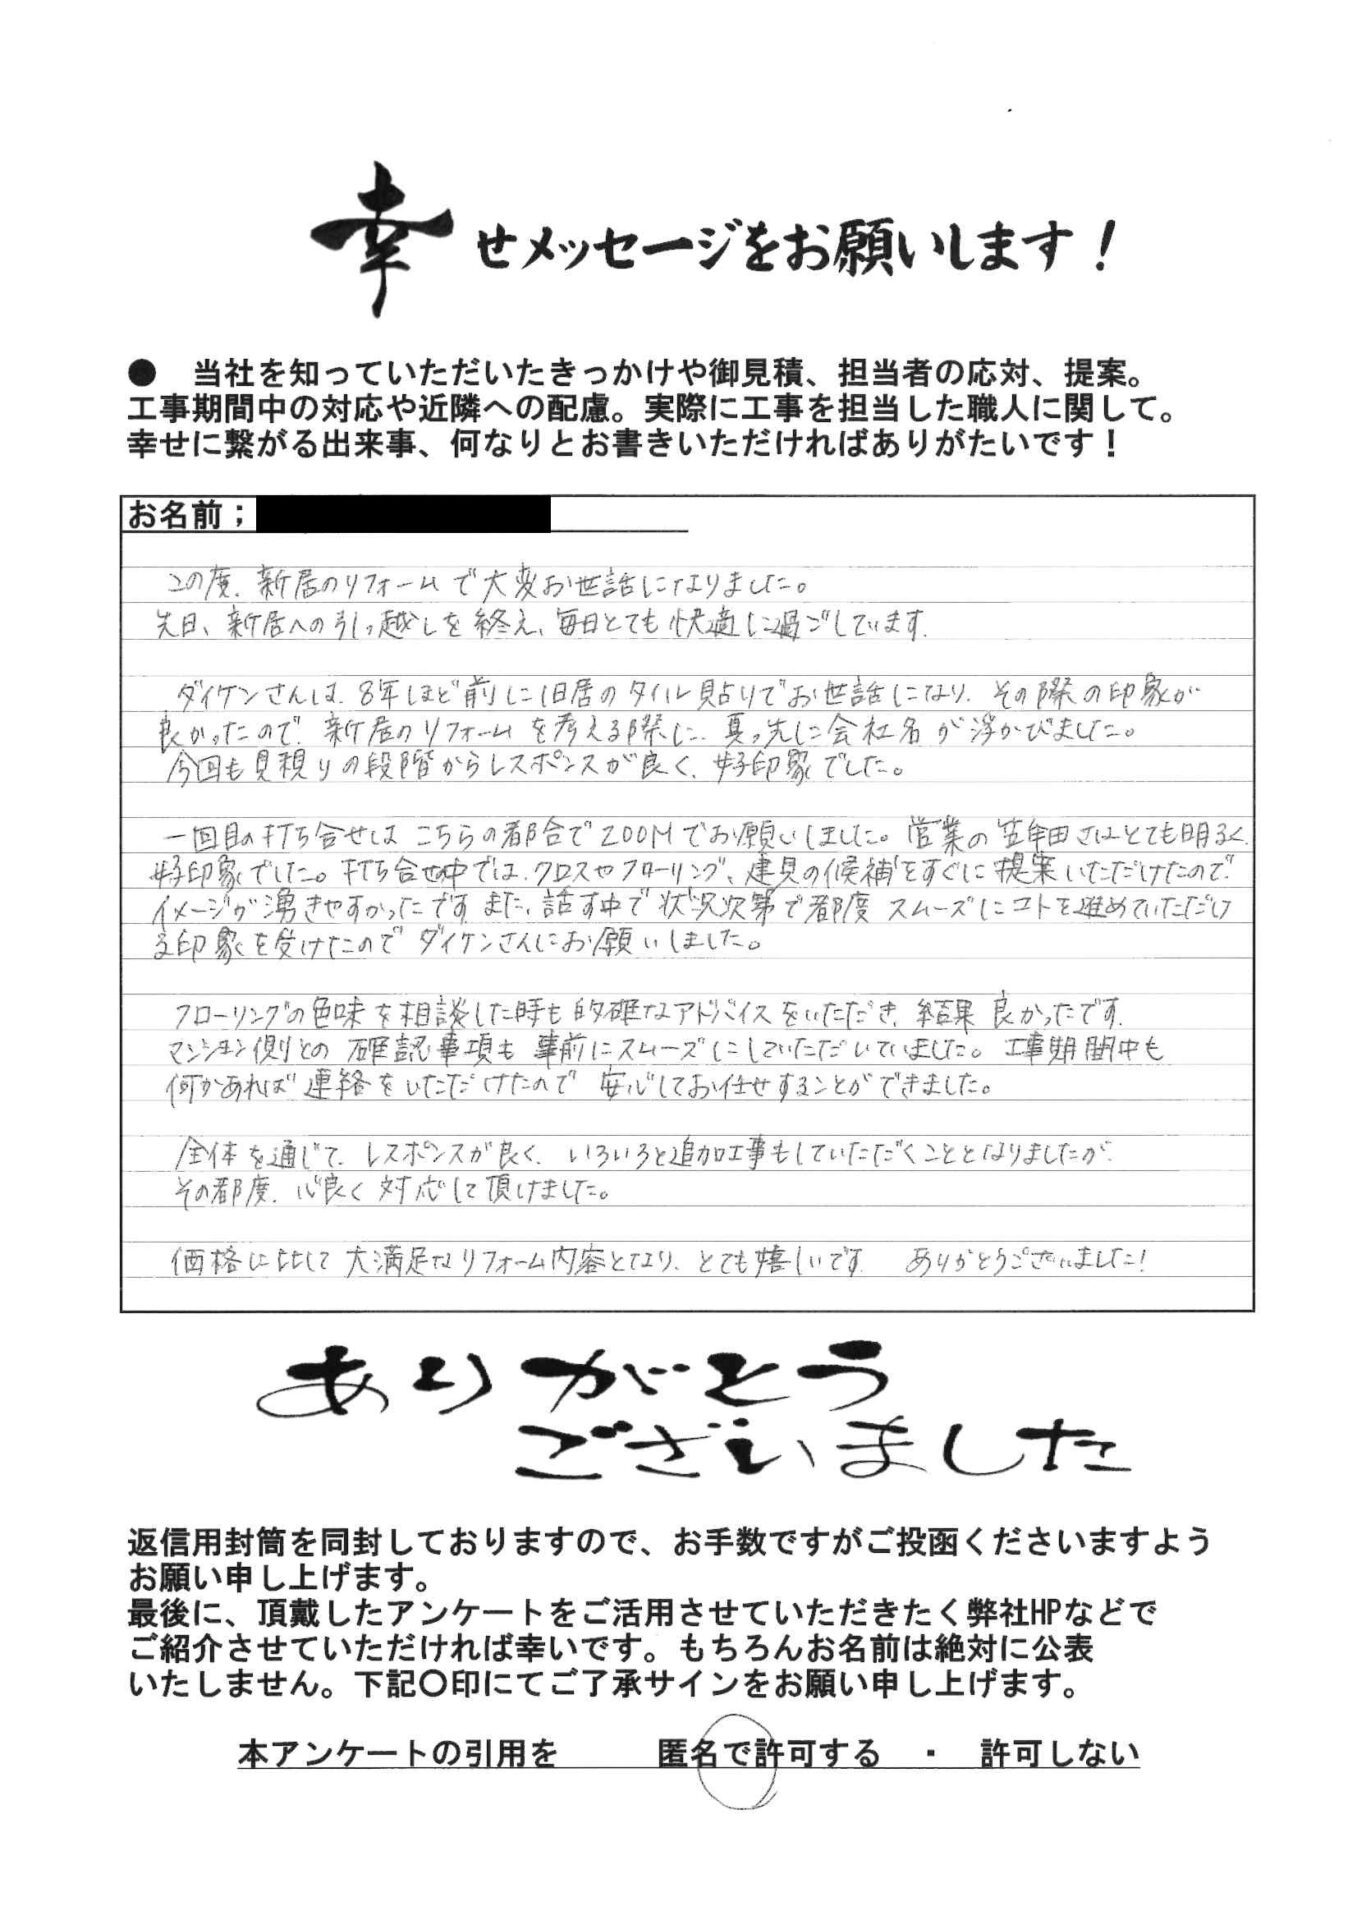 幸せメッセージをお願いします！
● 当社を知っていただいたきっかけや御見積、担当者の応対、提案。
工事期間中の対応や近隣への配慮。実際に工事を担当した職人に関して。
幸せに繋がる出来事、何なりとお書きいただければありがたいです！
お名前；
この度、新居のリフォームで大変お世話になりました。
先日、新居への引っ越しを終え、毎日とても快適に過ごしています。
ダイケンさんは、8年ほど前に旧居のタイル貼りでお世話になり、その際の印象が
良かったので、新居のリフォームを考える際に、真っ先に会社名が浮かびました。
今回も見積りの段階からレスポンスが良く、好印象でした。
一回目の打ち合せは こちらの都合でZOOMでお願いしました。営業の 田さんはとても明るく、
好印象でした。打ち合せ中では、クロスやフローリング、建具の候補をすぐに提案いただけたので、
イメージが湧きやすかったです。また、話す中で状況次第で都度 スムーズにコトを進めていただけ
る印象を受けたので ダイケンさんにお願いしました。
フローリングの色味を相談した時も 的確なアドバイスをいただき、結果 良かったです。
マンション側との 確認事項も 事前にスムーズにしていただいていました。工事期間中も
何かあれば 連絡をいただけたので 安心してお任せすることができました。
全体を通じて、レスポンスが良く、いろいろと追加工事もしていただくこととなりましたが、
その都度、心良く対応して頂けました。
価格に比して 大満足なリフォーム内容となり、とても嬉しいです。 ありがとうございました！
ありがとう
ございました
返信用封筒を同封しておりますので、お手数ですがご投函くださいますよう
お願い申し上げます。
最後に、頂戴したアンケートをご活用させていただきたく弊社HPなどで
ご紹介させていただければ幸いです。もちろんお名前は絶対に公表
いたしません。下記〇印にてご了承サインをお願い申し上げます。
本アンケートの引用を 匿名で許可する ・ 許可しない